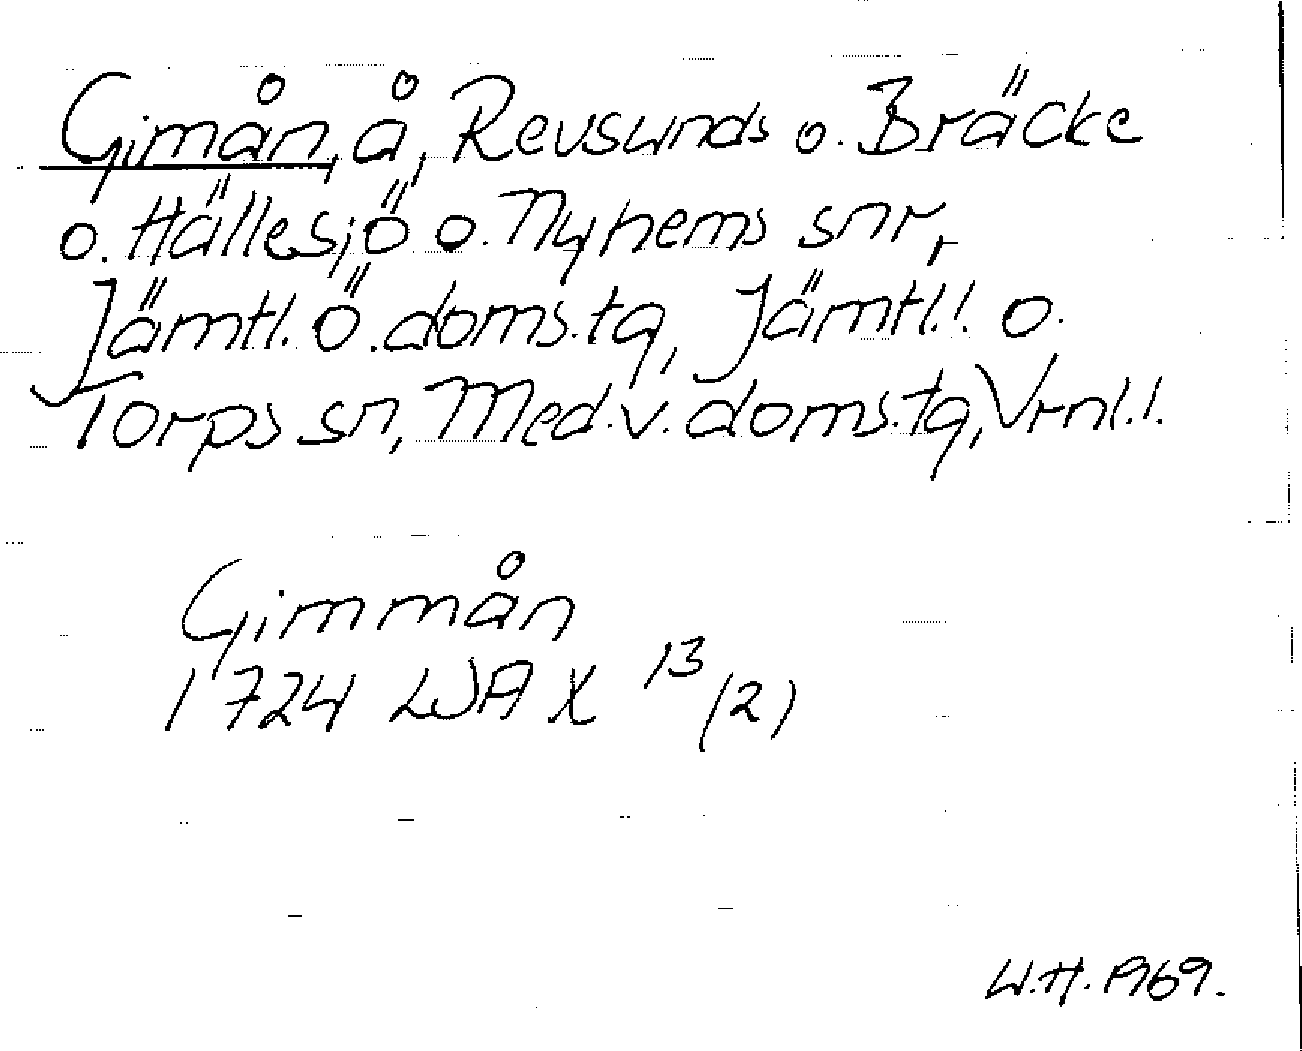 Gimån, å, Revsunds o. Bräcke
o. Hällesjö o. Nyhems snr,
Jämtl. ö. doms.tg, Jämtl.l. o.
Torps sn, Med. v. doms.tg, Vrnl.l.
Gimmån
1724 LSA X 13/(2)
W.H. 1969.